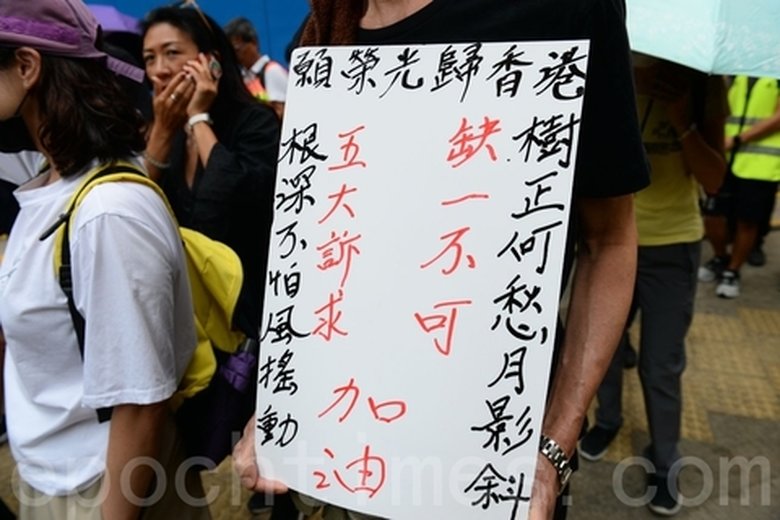 願榮光歸香港
根深不怕風搖動
五大訴求
缺一不可
樹正何愁月影斜
加油
epochtimes.com